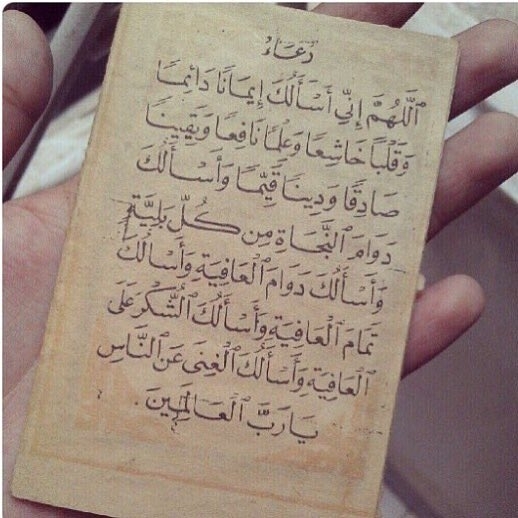 دُعَاءُ
ٱللَّهُمَّ إِنِّي أَسْأَلُكَ إِيمَانًا دَائِمًا
وَقَلْبًا خَاشِعًا وَعِلْمًا نَافِعًا وَيَقِينًا
صَادِقًا وَدِينًا قَيِّمًا وَأَسْأَلُكَ
دَوَامَ ٱلنَّجَاةِ مِن كُلِّ بَلِيَّةٍ
وَأَسْأَلُكَ دَوَامَ ٱلْعَافِيَةِ وَأَسْأَلُكَ
تَمَامَ ٱلْعَافِيَةِ وَأَسْأَلُكَ ٱلشُّكْرَ عَلَى
ٱلْعَافِيَةِ وَأَسْأَلُكَ ٱلْغِنَى عَنِ ٱلنَّاسِ
يَارَبَّ ٱلْعَالَمِينَ .